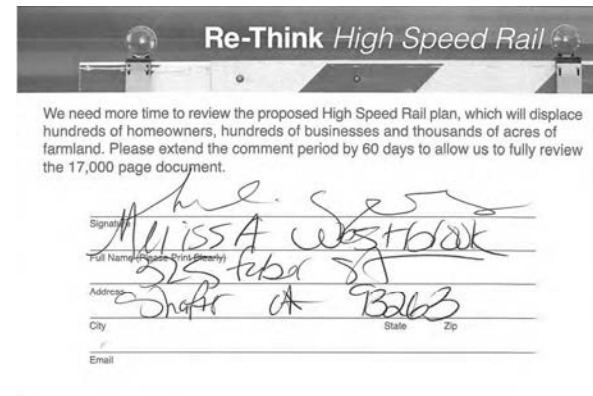 Re-Think High Speed Rail
We need more time to review the proposed High Speed Rail plan, which will displace
hundreds of homeowners, hundreds of businesses and thousands of acres of
farmland. Please extend the comment period by 60 days to allow us to fully review
the 17,000 page document.
Signature
Melissa
Full Name (Please Print Clearly)
325
Address
CA 93263
City State Zip
Email